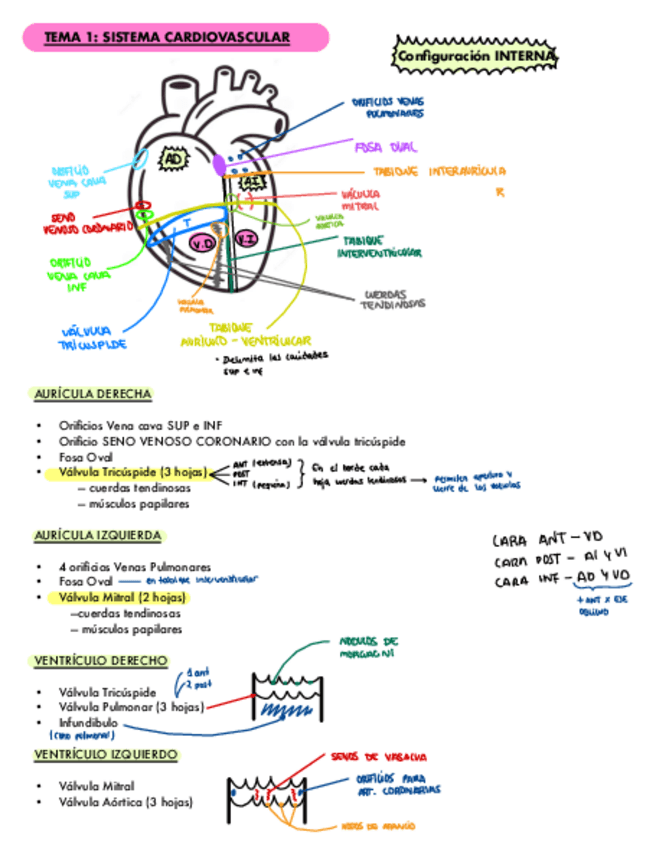 TEMA 1: SISTEMA CARDIOVASCULAR
Configuración INTERNA
ORIFICIOS VENAS
PULMONARES
FOSA OVAL
TABIQUE INTERAURÍCULA
R
AD
AI
ORIFICIO
VENA CAVA
SUP
VÁLVULA
MITRAL
SENO
VENOSO CORONARIO
VÁLVULA
AÓRTICA
T
V.D
V.I
TABIQUE
INTERVENTRICULAR
ORIFICIO
VENA CAVA
INF
CUERDAS
TENDINOSAS
VÁLVULA
PULMONAR
VÁLVULA
TRICUSPIDE
TABIQUE
AURÍCULO - VENTRICULAR
• Delimita las cavidades
SUP e INF
AURÍCULA DERECHA
• Orificios Vena cava SUP e INF
• Orificio SENO VENOSO CORONARIO con la válvula tricúspide
• Fosa Oval
• Válvula Tricúspide (3 hojas)
ANT (extensa)
POST
INT (pequeña)
En el borde cada
hoja cuerdas tendinosas → permiten apertura y
cierre de las válvulas
— cuerdas tendinosas
— músculos papilares
AURÍCULA IZQUIERDA
• 4 orificios Venas Pulmonares
• Fosa Oval — en tabique interventricular
• Válvula Mitral (2 hojas)
—cuerdas tendinosas
— músculos papilares
CARA ANT - VD
CARA POST - AI Y VI
CARA INF - AD Y VD
+ ANT X EJE
OBLICUO
VENTRÍCULO DERECHO
• Válvula Tricúspide
• Válvula Pulmonar (3 hojas)
1 ant
2 post
• Infundibulo
(cono pulmonar)
NODULOS DE
MORGAGNI
VENTRÍCULO IZQUIERDO
• Válvula Mitral
• Válvula Aórtica (3 hojas)
SENOS DE VASALVA
ORIFICIOS PARA
ART. CORONARIAS